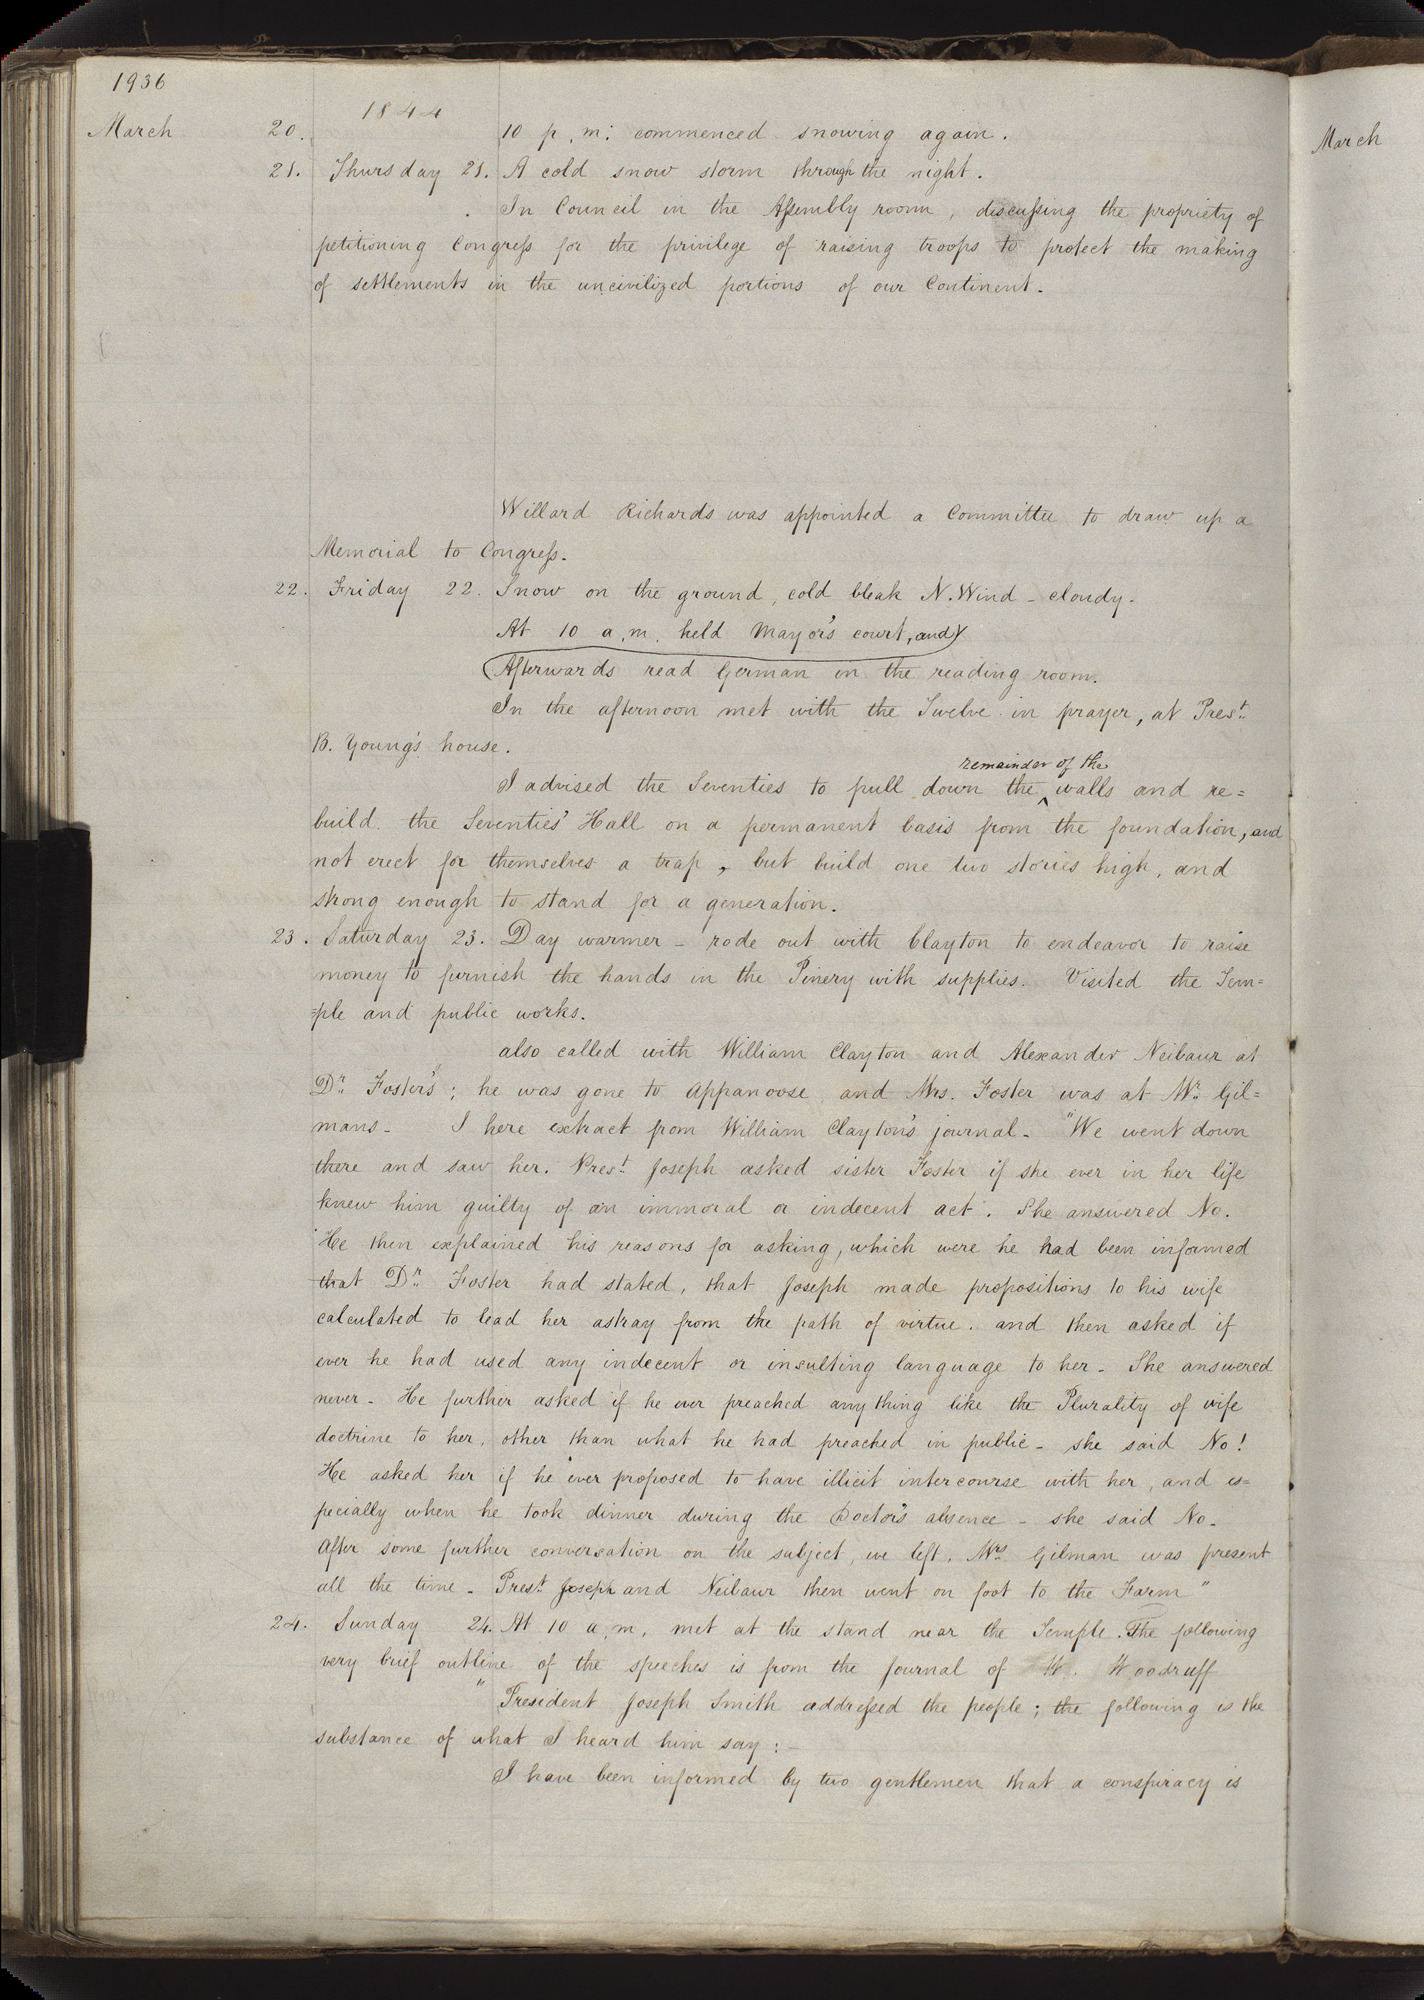 1936
1844
March 20. 10 p.m: commenced snowing again.
21. Thursday 21. A cold snow storm through the night.
In Council in the Assembly room, discussing the propriety of
petitioning Congress for the privilege of raising troops to protect the making
of settlements in the uncivilized portions of our Continent.
Willard Richards was appointed a Committee to draw up a
Memorial to Congress.
22. Friday 22. Snow on the ground, cold bleak N. Wind - cloudy.
At 10 a.m. held Mayor's court, and
Afterwards read German in the reading room.
In the afternoon met with the Twelve in prayer, at Prest.
B. Young's house.
remainder of the
I advised the Seventies to pull down the ^ walls and re=
build the Seventies' Hall on a permanent basis from the foundation, and
not erect for themselves a trap, but build one two stories high, and
strong enough to stand for a generation.
23. Saturday 23. Day warmer - rode out with Clayton to endeavor to raise
money to furnish the hands in the Pinery with supplies. Visited the Tem=
=ple and public works.
also called with William Clayton and Alexander Neibaur at
Dr. Foster's; he was gone to Appanoose, and Mrs. Foster was at Mr. Gil=
mans - I here extract from William Clayton's journal - "We went down
there and saw her. Prest. Joseph asked sister Foster if she ever in her life
knew him guilty of an immoral or indecent act. She answered No.
He then explained his reasons for asking, which were he had been informed
that Dr. Foster had stated, that Joseph made propositions to his wife
calculated to lead her astray from the path of virtue. and then asked if
ever he had used any indecent or insulting language to her - She answered
never - He further asked if he ever preached any thing like the Plurality of wife
doctrine to her, other than what he had preached in public - she said No!
He asked her if he ever proposed to have illicit intercourse with her, and es=
pecially when he took dinner during the Doctor's absence - she said No -
After some further conversation on the subject, we left. Mrs Gilman was present
all the time - Prest. Joseph and Neibaur then went on foot to the Farm"
24. Sunday 24. At 10 a.m. met at the stand near the Temple. The following
very brief outline of the speeches is from the Journal of W. Woodruff
"President Joseph Smith addressed the people; the following is the
substance of what I heard him say: -
I have been informed by two gentlemen that a conspiracy is
March